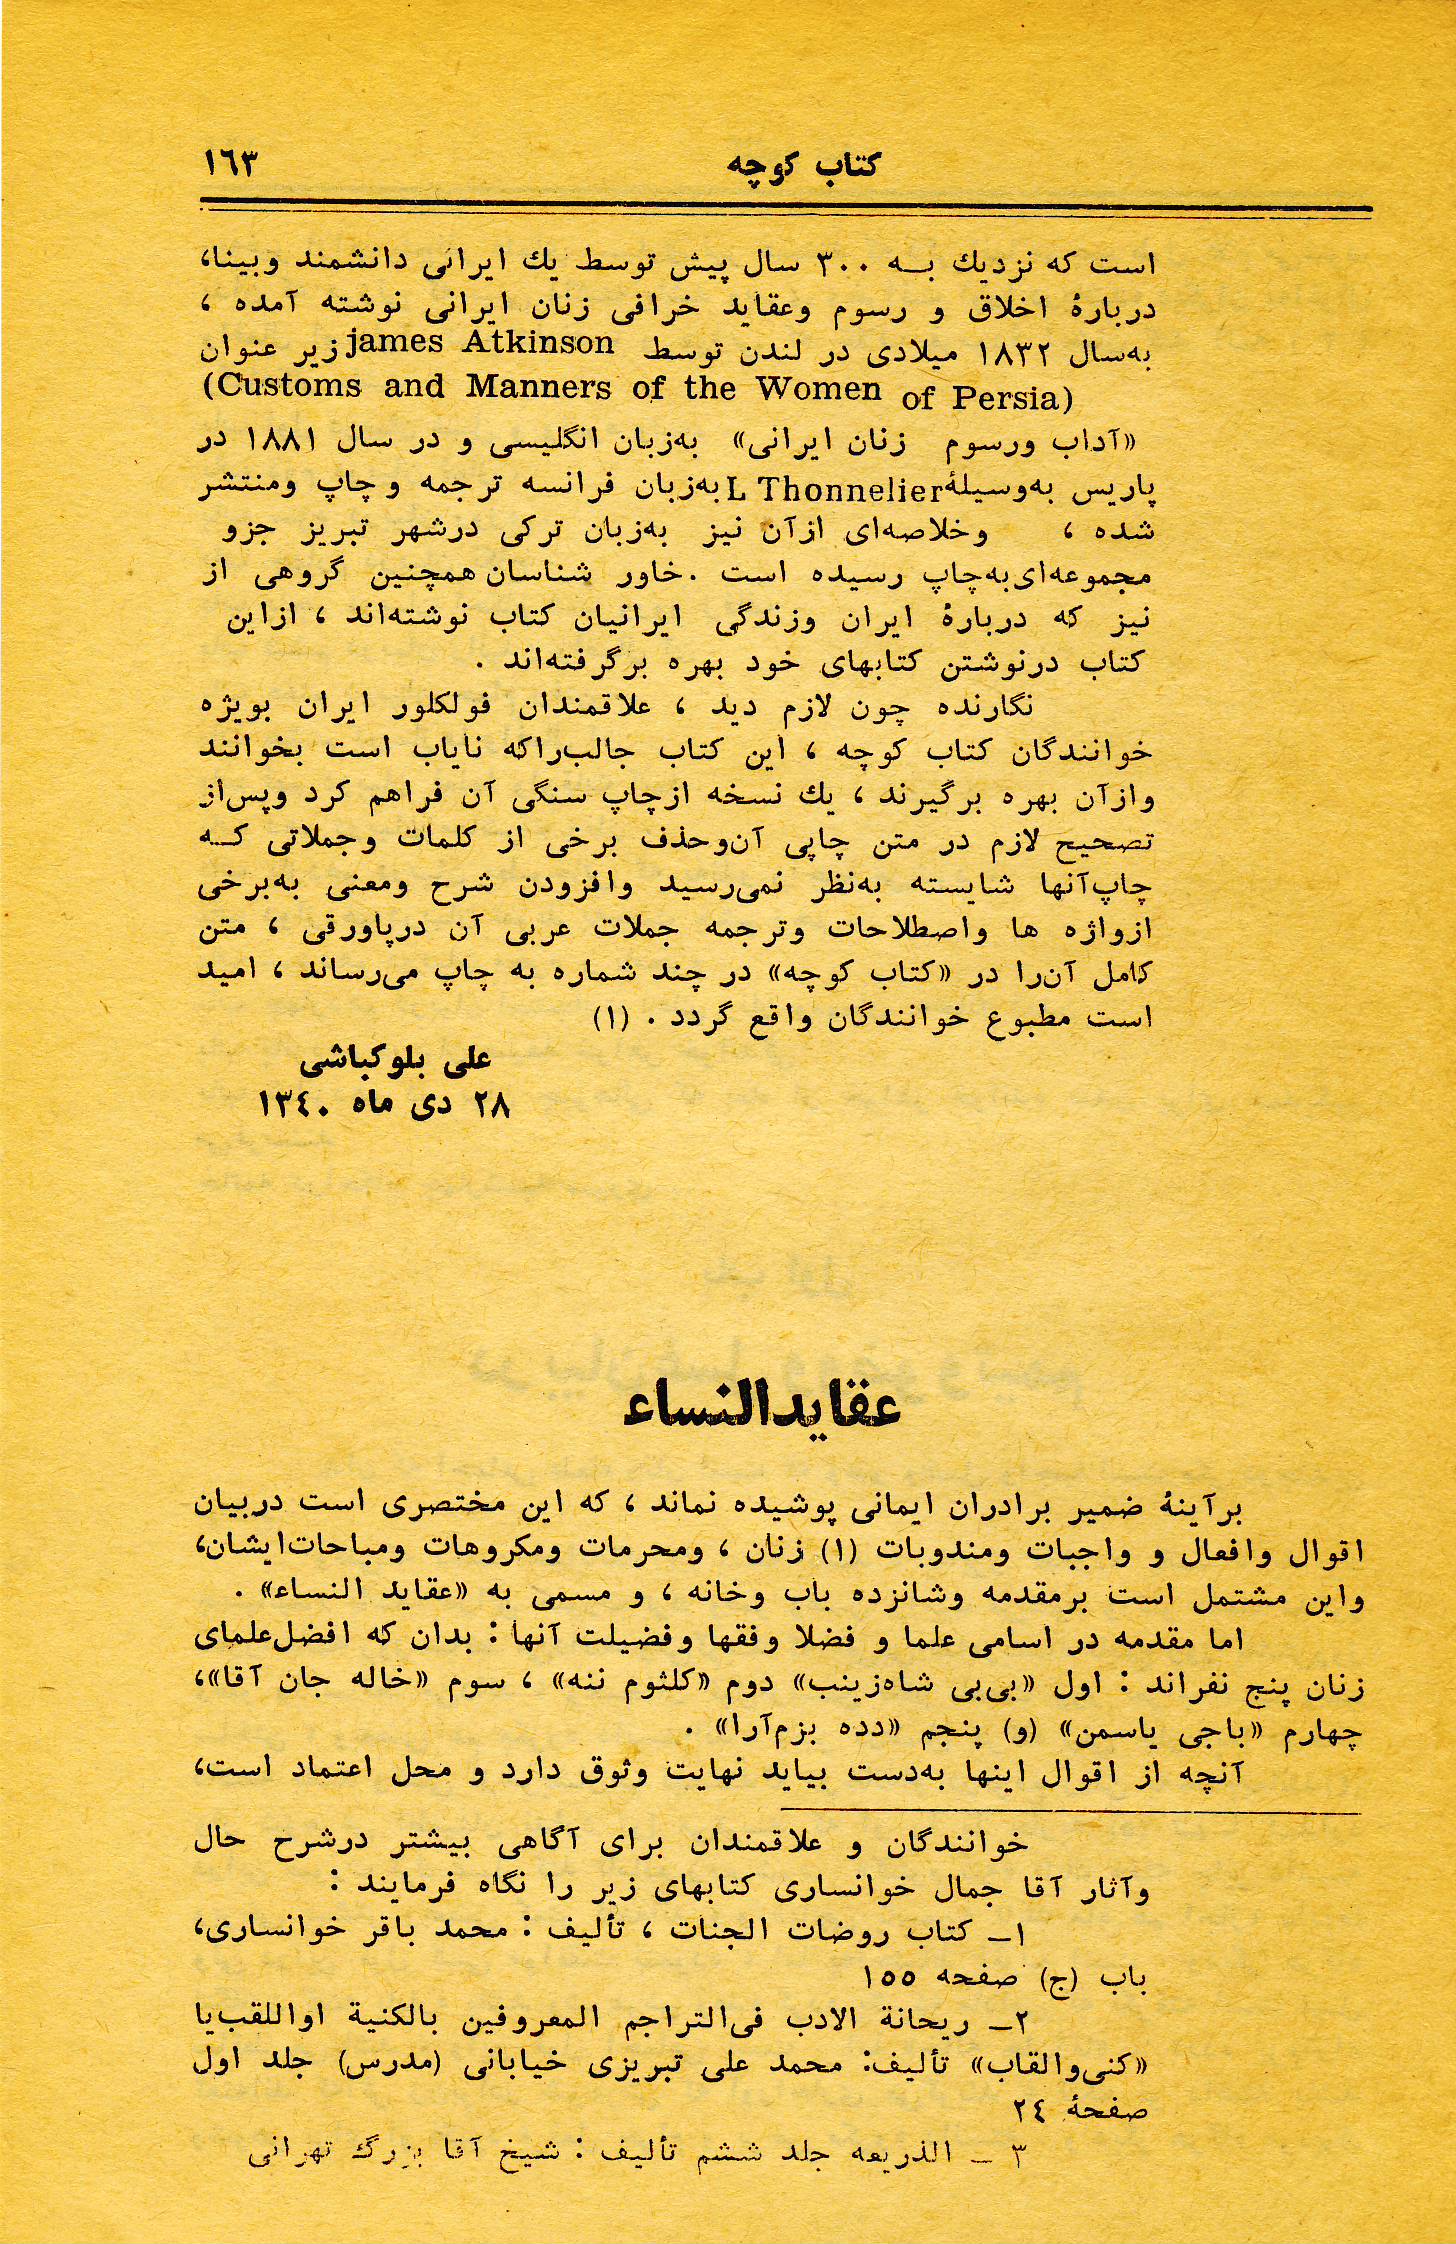 کتاب کوچه ۱٦۳
است که نزدیك بـه ۳۰۰ سال پیش توسط یك ایرانی دانشمند وبینا،
دربارهٔ اخلاق و رسوم وعقاید خرافی زنان ایرانی نوشته آمده ،
به‌سال ۱۸۳۲ میلادی در لندن توسط james Atkinson زیر عنوان
(Customs and Manners of the Women of Persia)
«آداب ورسوم زنان ایرانی» به‌زبان انگلیسی و در سال ۱۸۸۱ در
پاریس به‌وسیلهٔ L Thonnelier به‌زبان فرانسه ترجمه و چاپ ومنتشر
شده ، وخلاصه‌ای ازآن نیز به‌زبان ترکی درشهر تبریز جزو
مجموعه‌ای‌به‌چاپ رسیده است . خاور شناسان همچنین گروهی از
نیز که دربارهٔ ایران وزندگی ایرانیان کتاب نوشته‌اند ، ازاین
کتاب درنوشتن کتابهای خود بهره برگرفته‌اند .
نگارنده چون لازم دید ، علاقمندان فولکلور ایران بویژه
خوانندگان کتاب کوچه ، این کتاب جالب‌راکه نایاب است بخوانند
وازآن بهره برگیرند ، یك نسخه ازچاپ سنگی آن فراهم کرد وپس‌از
تصحیح لازم در متن چاپی آن‌وحذف برخی از کلمات وجملاتی کـه
چاپ‌آنها شایسته به‌نظر نمی‌رسید وافزودن شرح ومعنی به‌برخی
ازواژه ها واصطلاحات وترجمه جملات عربی آن درپاورقی ، متن
کامل آن‌را در «کتاب کوچه» در چند شماره به چاپ می‌رساند ، امید
است مطبوع خوانندگان واقع گردد . (۱)
علی بلوکباشی
۲۸ دی ماه ۱۳٤۰
عقایدالنساء
برآینهٔ ضمیر برادران ایمانی پوشیده نماند ، که این مختصری است دربیان
اقوال وافعال و واجبات ومندوبات (۱) زنان ، ومحرمات ومکروهات ومباحات‌ایشان،
واین مشتمل است برمقدمه وشانزده باب وخانه ، و مسمی به «عقاید النساء» .
اما مقدمه در اسامی علما و فضلا وفقها وفضیلت آنها : بدان که افضل‌علمای
زنان پنج نفراند : اول «بی‌بی شاه‌زینب» دوم «کلثوم ننه» ، سوم «خاله جان آقا»،
چهارم «باجی یاسمن» (و) پنجم «دده بزم‌آرا» .
آنچه از اقوال اینها به‌دست بیاید نهایت وثوق دارد و محل اعتماد است،
خوانندگان و علاقمندان برای آگاهی بیشتر درشرح حال
وآثار آقا جمال خوانساری کتابهای زیر را نگاه فرمایند :
۱ـ کتاب روضات الجنات ، تألیف : محمد باقر خوانساری،
باب (ج) صفحه ۱۵۵
۲ـ ریحانة الادب فی‌التراجم المعروفین بالکنیة اواللقب‌یا
«کنی‌والقاب» تألیف: محمد علی تبریزی خیابانی (مدرس) جلد اول
صفحهٔ ۲٤
۳ ـ الذریعه جلد ششم تألیف : شیخ آقا بزرگ تهرانی